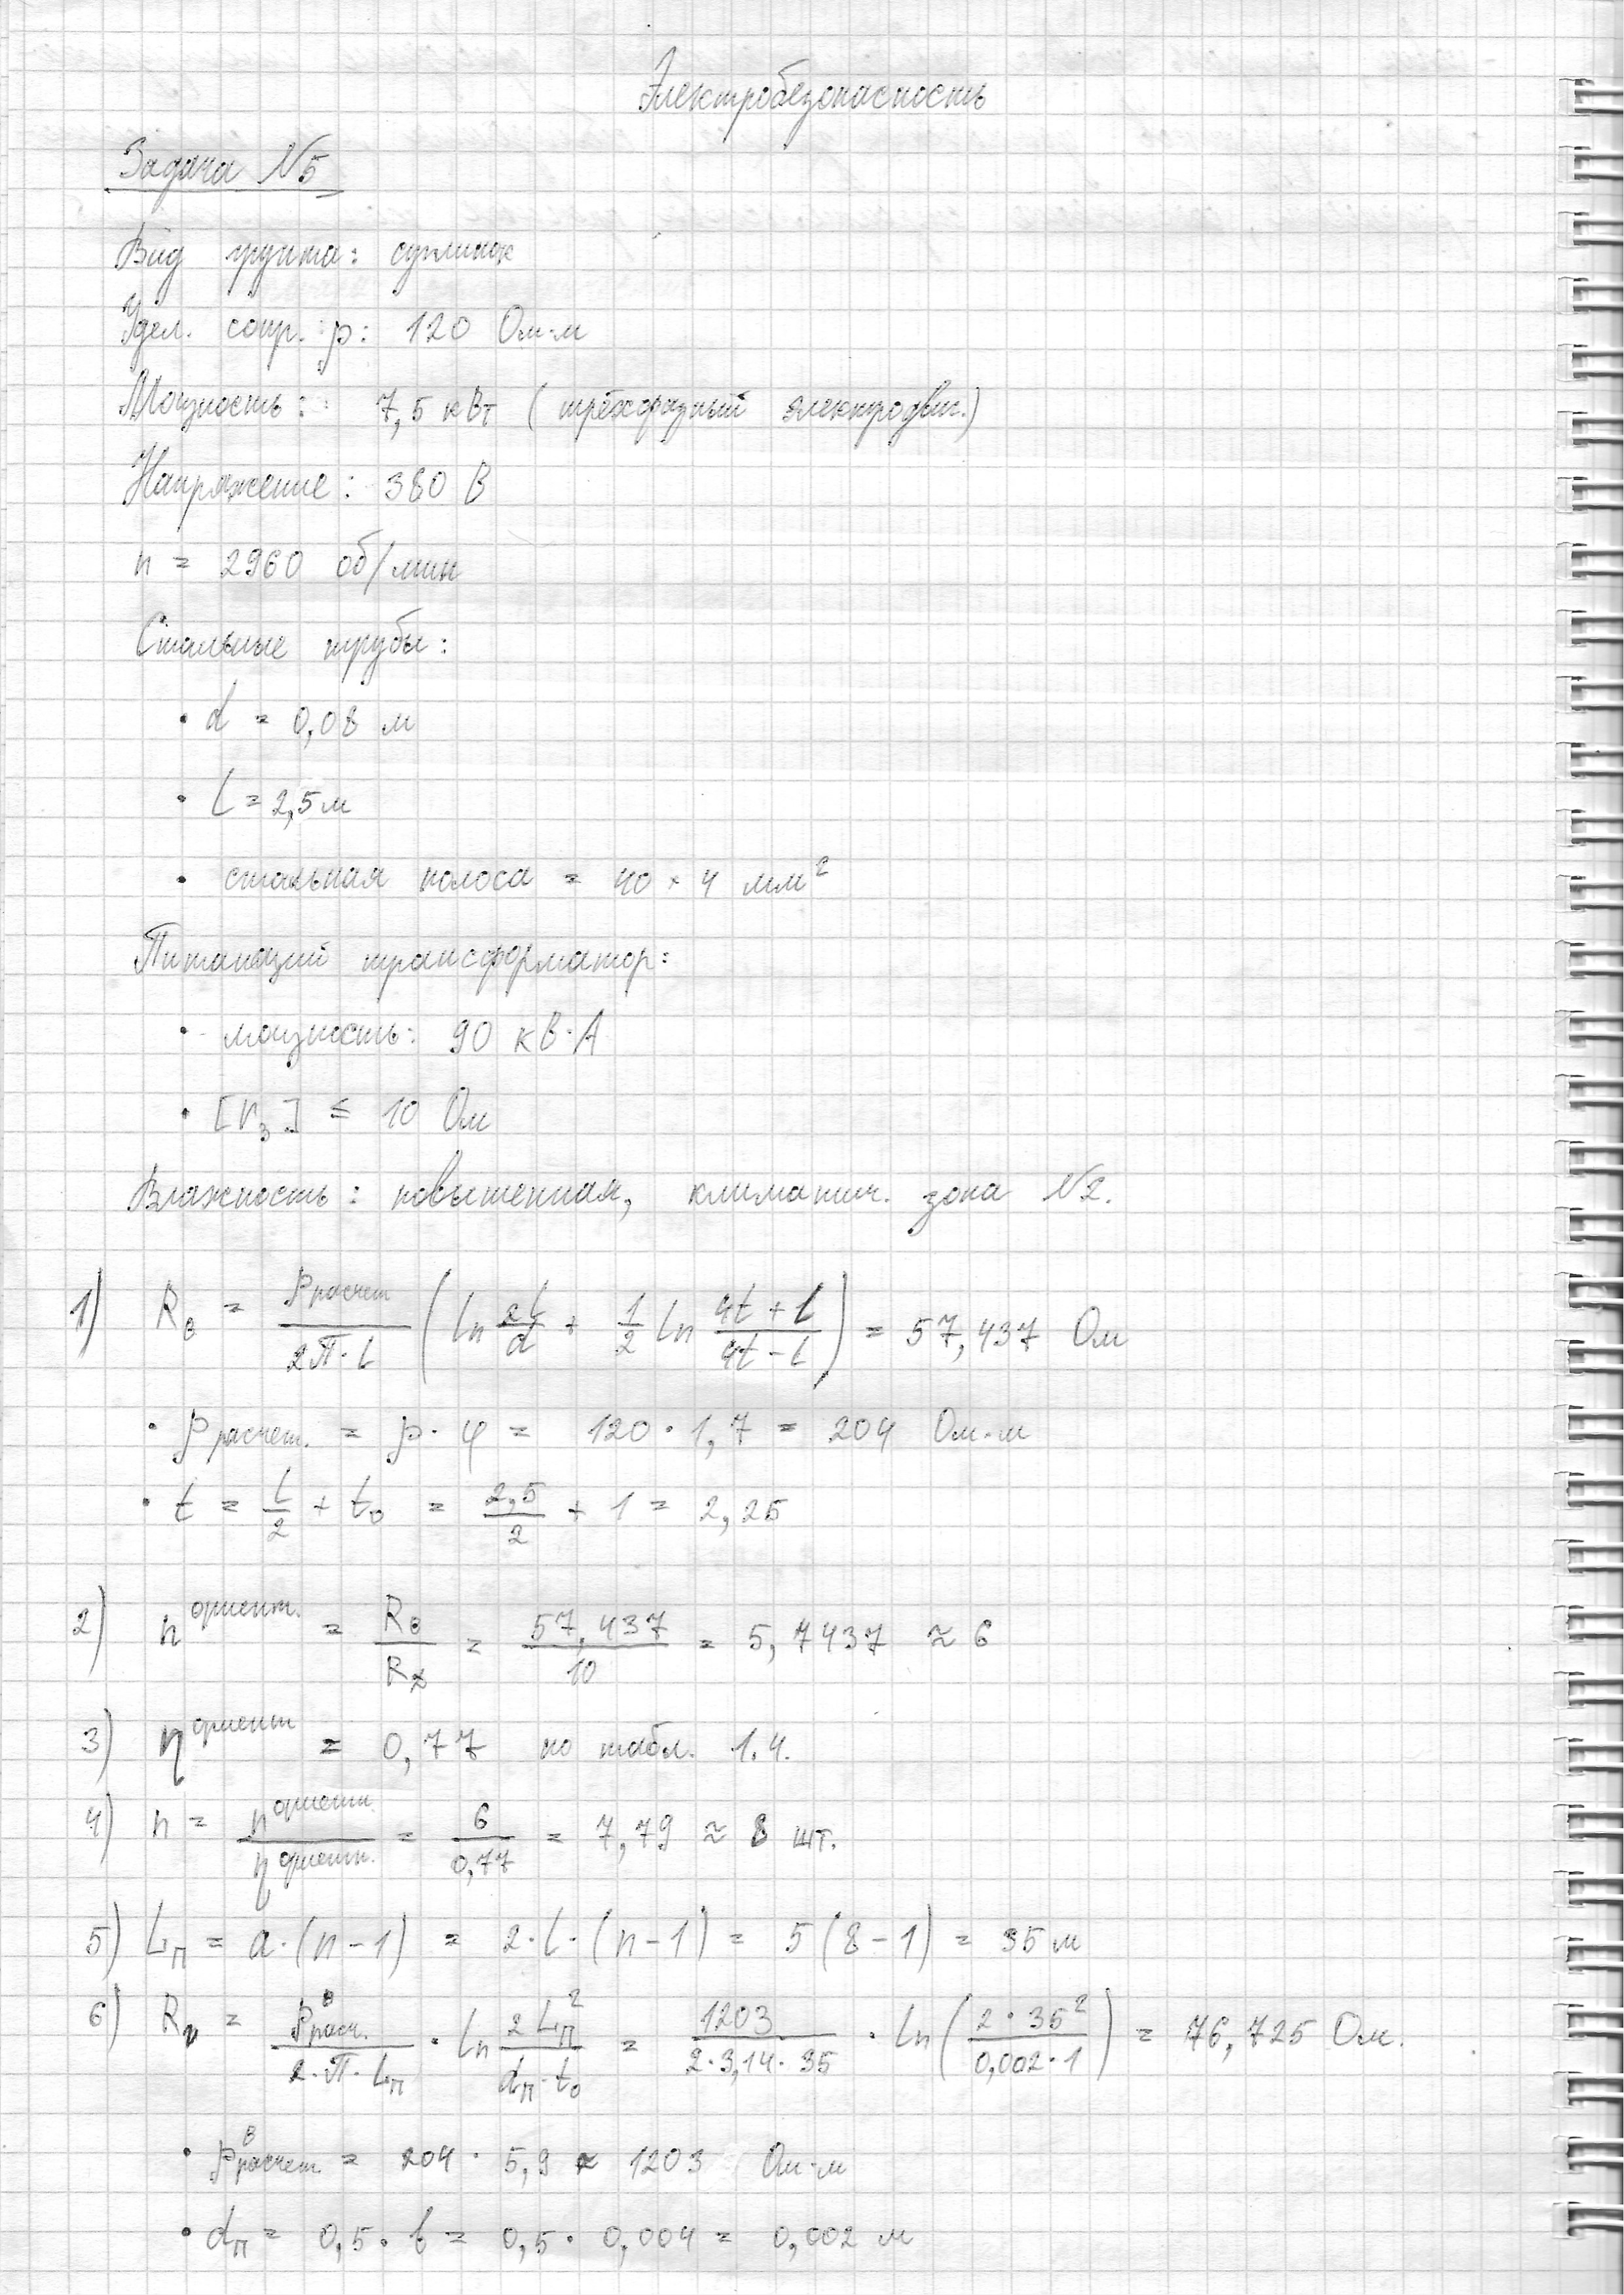 Электробезопасность
Задача №5
Вид грунта: суглинок
Удел. сопр. ρ: 120 Ом·м
Мощность: 7,5 кВт (трёхфазный электродвиг.)
Напряжение: 380 В
n = 2960 об/мин
Стальные трубы:
• d = 0,08 м
• l = 2,5 м
• стальная полоса = 40 × 4 мм²
Питающий трансформатор:
• мощность: 90 кВ·А
• [r₃] ≤ 10 Ом
Влажность: повышенная, климатич. зона №2.
1) Rв = ρрасчет / (2π·l) (ln 2l/d + 1/2 ln (4t + l)/(4t − l)) = 57,437 Ом
• ρрасчет. = ρ·φ = 120 · 1,7 = 204 Ом·м
• t = l/2 + t₀ = 2,5/2 + 1 = 2,25
2) n^ориент. = Rв/Rз = 57,437/10 = 5,7437 ≈ 6
3) η^ориент = 0,77 по табл. 1.4.
4) n = n^ориент. / η^ориент. = 6/0,77 = 7,79 ≈ 8 шт.
5) Lп = a·(n−1) = 2·l·(n−1) = 5(8−1) = 35 м
6) Rг = ρ^в расч. / (2·π·Lп) · ln 2Lп² / (dп·t₀) = 1203 / (2·3,14·35) · ln(2·35² / (0,002·1)) = 76,725 Ом.
• ρ^в расчет = 204 · 5,9 ≈ 1203 Ом·м
• dп = 0,5·b = 0,5 · 0,004 = 0,002 м